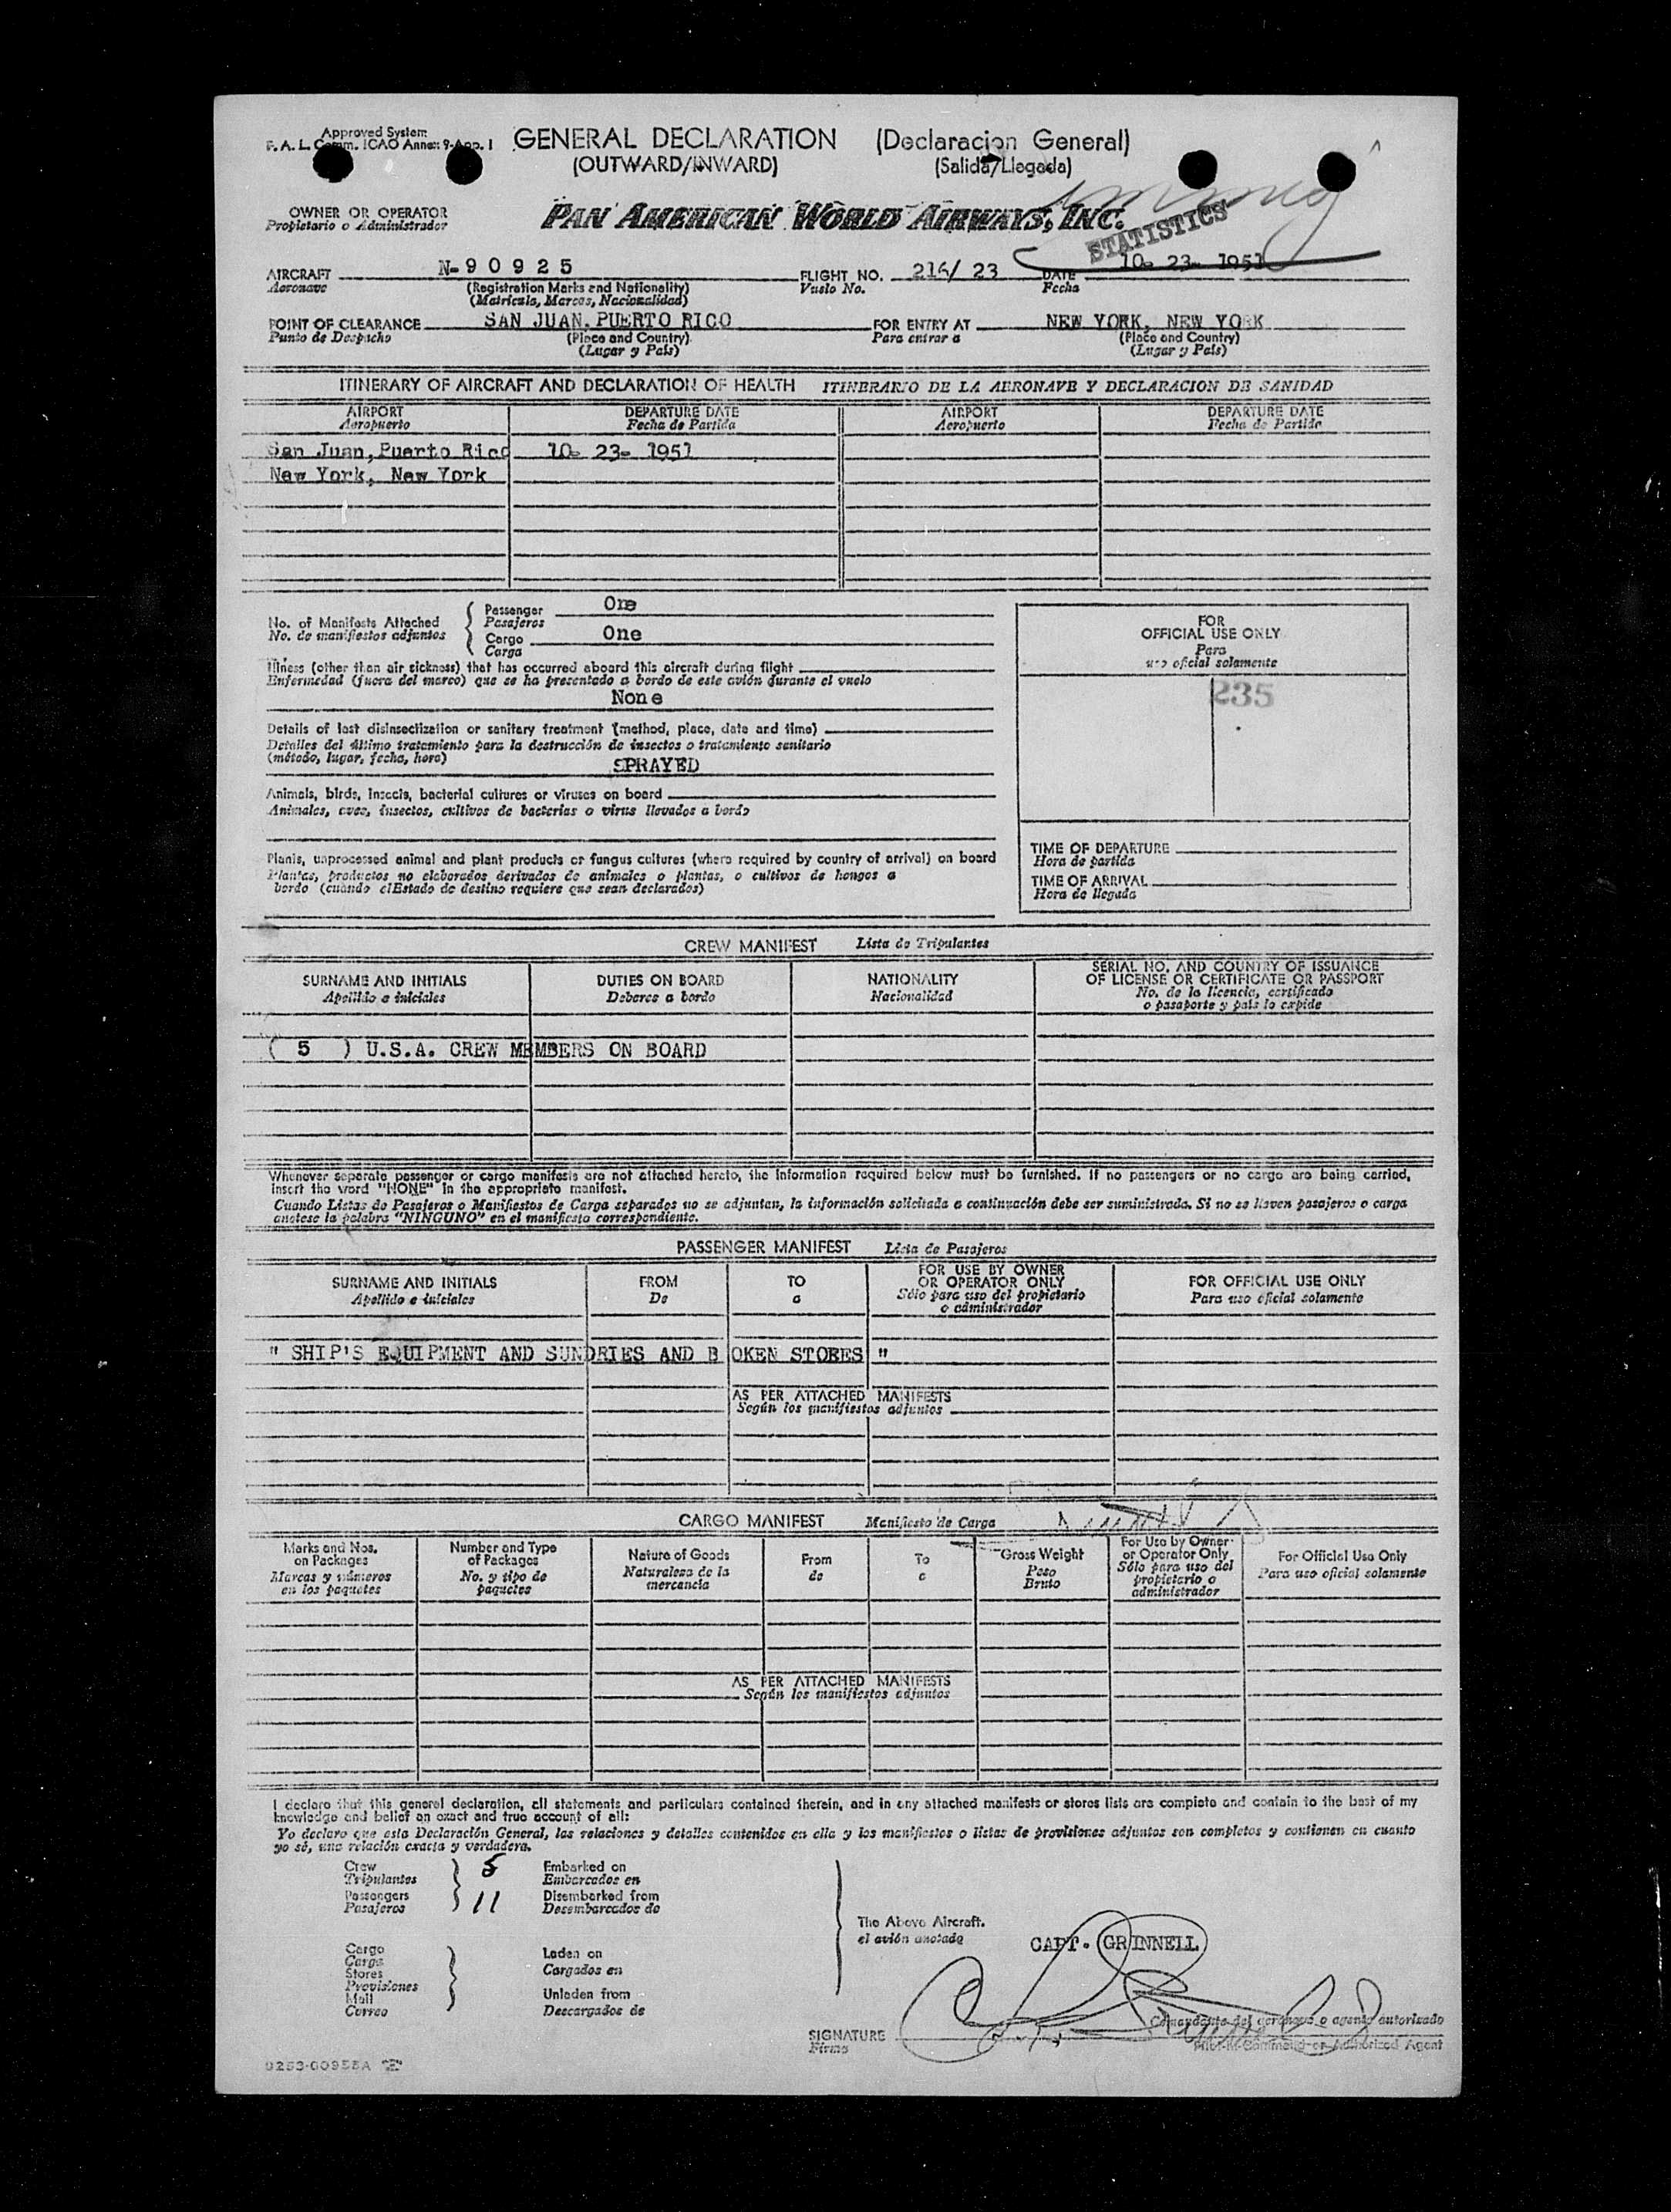 Approved System
F. A. L. Comm. ICAO Annex 9-App. 1
GENERAL DECLARATION (Declaracion General)
(OUTWARD/INWARD) (Salida/Llegada)
OWNER OR OPERATOR
Propietario o Administrador
PAN AMERICAN WORLD AIRWAYS, INC.
STATISTICS
AIRCRAFT N-90925 FLIGHT NO. 216/ 23 DATE 10- 23- 1951
Aeronave (Registration Marks and Nationality) Vuelo No. Fecha
(Matricula, Marcas, Nacionalidad)
POINT OF CLEARANCE SAN JUAN, PUERTO RICO FOR ENTRY AT NEW YORK, NEW YORK
Punto de Despacho (Place and Country) Para entrar a (Place and Country)
(Lugar y Pais) (Lugar y Pais)
ITINERARY OF AIRCRAFT AND DECLARATION OF HEALTH ITINERARIO DE LA AERONAVE Y DECLARACION DE SANIDAD
AIRPORT DEPARTURE DATE AIRPORT DEPARTURE DATE
Aeropuerto Fecha de Partida Aeropuerto Fecha de Partida
San Juan, Puerto Rico 10- 23- 1951
New York, New York
No. of Manifests Attached
No. de manifiestos adjuntos
Passenger One
Pasajeros
Cargo One
Carga
FOR
OFFICIAL USE ONLY
Para
uso oficial solamente
235
Illness (other than air sickness) that has occurred aboard this aircraft during flight
Enfermedad (fuera del mareo) que se ha presentado a bordo de este avión durante el vuelo
None
Details of last disinsectization or sanitary treatment (method, place, date and time)
Detalles del último tratamiento para la destrucción de insectos o tratamiento sanitario
(método, lugar, fecha, hora)
SPRAYED
Animals, birds, insects, bacterial cultures or viruses on board
Animales, aves, insectos, cultivos de bacterias o virus llevados a bordo
Plants, unprocessed animal and plant products or fungus cultures (where required by country of arrival) on board
Plantas, productos no elaborados derivados de animales o plantas, o cultivos de hongos a
bordo (cuando el Estado de destino requiere que sean declarados)
TIME OF DEPARTURE
Hora de partida
TIME OF ARRIVAL
Hora de llegada
CREW MANIFEST Lista de Tripulantes
SURNAME AND INITIALS DUTIES ON BOARD NATIONALITY SERIAL NO. AND COUNTRY OF ISSUANCE
OF LICENSE OR CERTIFICATE OR PASSPORT
Apellido e iniciales Deberes a bordo Nacionalidad No. de la licencia, certificado
o pasaporte y pais lo expide
( 5 ) U.S.A. CREW MEMBERS ON BOARD
Whenever separate passenger or cargo manifests are not attached hereto, the information required below must be furnished. If no passengers or no cargo are being carried,
insert the word "NONE" in the appropriate manifest.
Cuando Listas de Pasajeros o Manifiestos de Carga separados no se adjuntan, la información solicitada a continuación debe ser suministrada. Si no se lleven pasajeros o carga
anotese la palabra "NINGUNO" en el manifiesto correspondiente.
PASSENGER MANIFEST Lista de Pasajeros
SURNAME AND INITIALS FROM TO FOR USE BY OWNER
OR OPERATOR ONLY FOR OFFICIAL USE ONLY
Apellido e iniciales De a Sólo para uso del propietario
o administrador Para uso oficial solamente
" SHIP'S EQUIPMENT AND SUNDRIES AND B OKEN STORES "
AS PER ATTACHED MANIFESTS
Según los manifiestos adjuntos
CARGO MANIFEST Manifiesto de Carga
Marks and Nos.
on Packages
Marcas y números
en los paquetes
Number and Type
of Packages
No. y tipo de
paquetes
Nature of Goods
Naturaleza de la
mercancia
From
de
To
a
Gross Weight
Peso
Bruto
For Use by Owner
or Operator Only
Sólo para uso del
propietario o
administrador
For Official Use Only
Para uso oficial solamente
AS PER ATTACHED MANIFESTS
Según los manifiestos adjuntos
I declare that this general declaration, all statements and particulars contained therein, and in any attached manifests or stores lists are complete and contain to the best of my
knowledge and belief an exact and true account of all:
Yo declaro que esta Declaración General, las relaciones y detalles contenidos en ella y los manifiestos o listas de provisiones adjuntos son completos y contienen en cuanto
yo sé, una relación exacta y verdadera.
Crew 5 Embarked on
Tripulantes Embarcados en
Passengers 11 Disembarked from
Pasajeros Desembarcados de
The Above Aircraft.
el avión anotado
CAPT. GRINNELL
Cargo
Carga
Stores
Provisiones
Mail
Correo
Laden on
Cargados en
Unladen from
Descargados de
SIGNATURE
Firma
Comandante del aeronave o agente autorizado
Pilot-in-Command or Authorized Agent